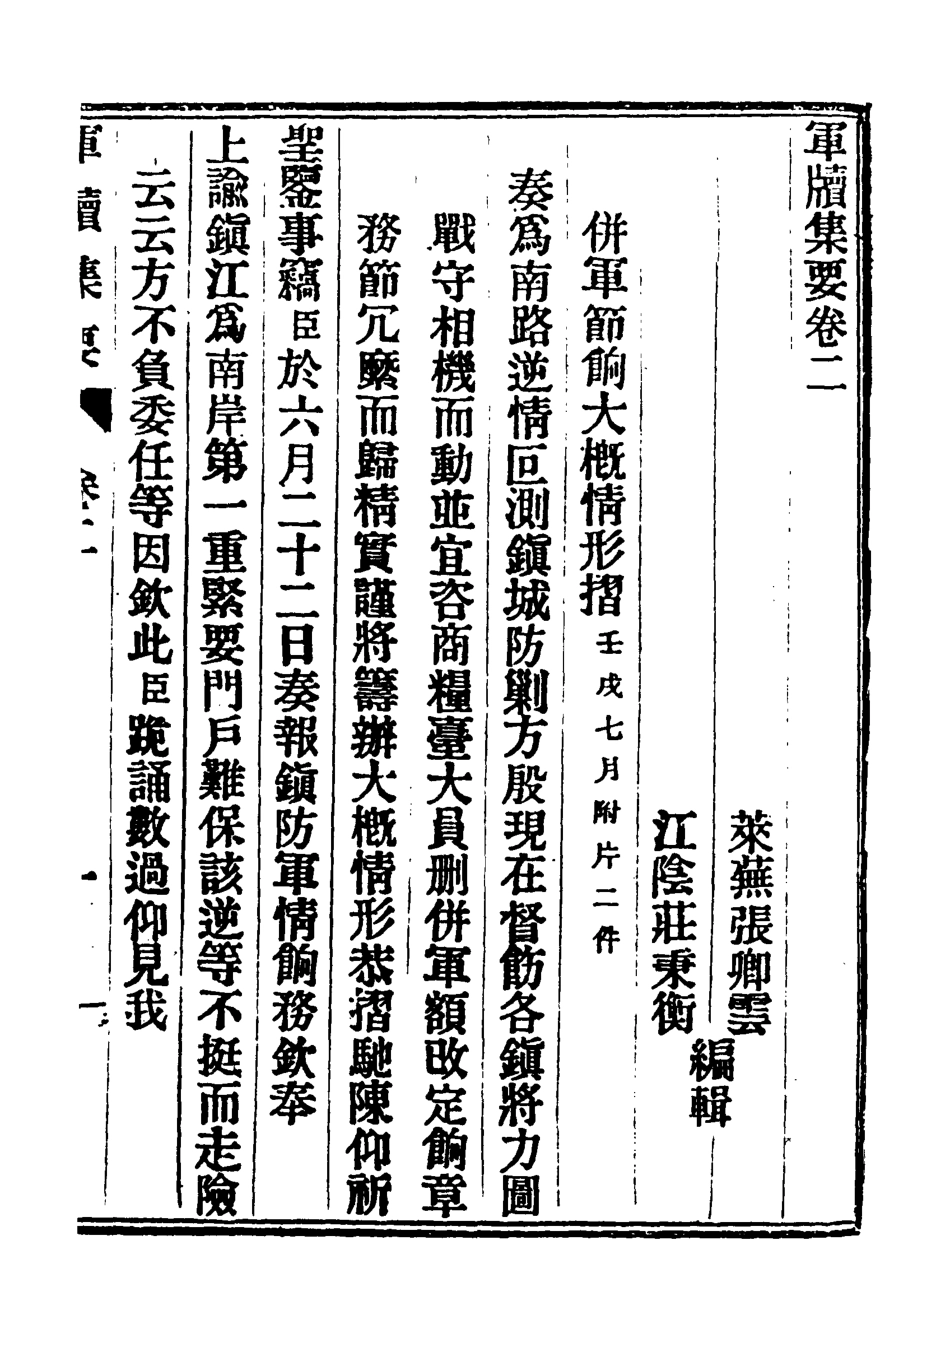 軍牘集要卷二
萊蕪張卿雲
江陰莊秉衡
編輯
併軍節餉大概情形摺 壬戌七月附片二件
奏爲南路逆情叵測鎭城防剿方殷現在督飭各鎭將力圖
戰守相機而動並宜咨商糧臺大員删併軍額改定餉章
務節冗縻而歸精實謹將籌辦大概情形恭摺馳陳仰祈
聖鑒事竊臣於六月二十二日奏報鎭防軍情餉務欽奉
上諭鎭江爲南岸第一重緊要門戶難保該逆等不挺而走險
云云方不負委任等因欽此臣跪誦數過仰見我
軍牘集要 卷二 一